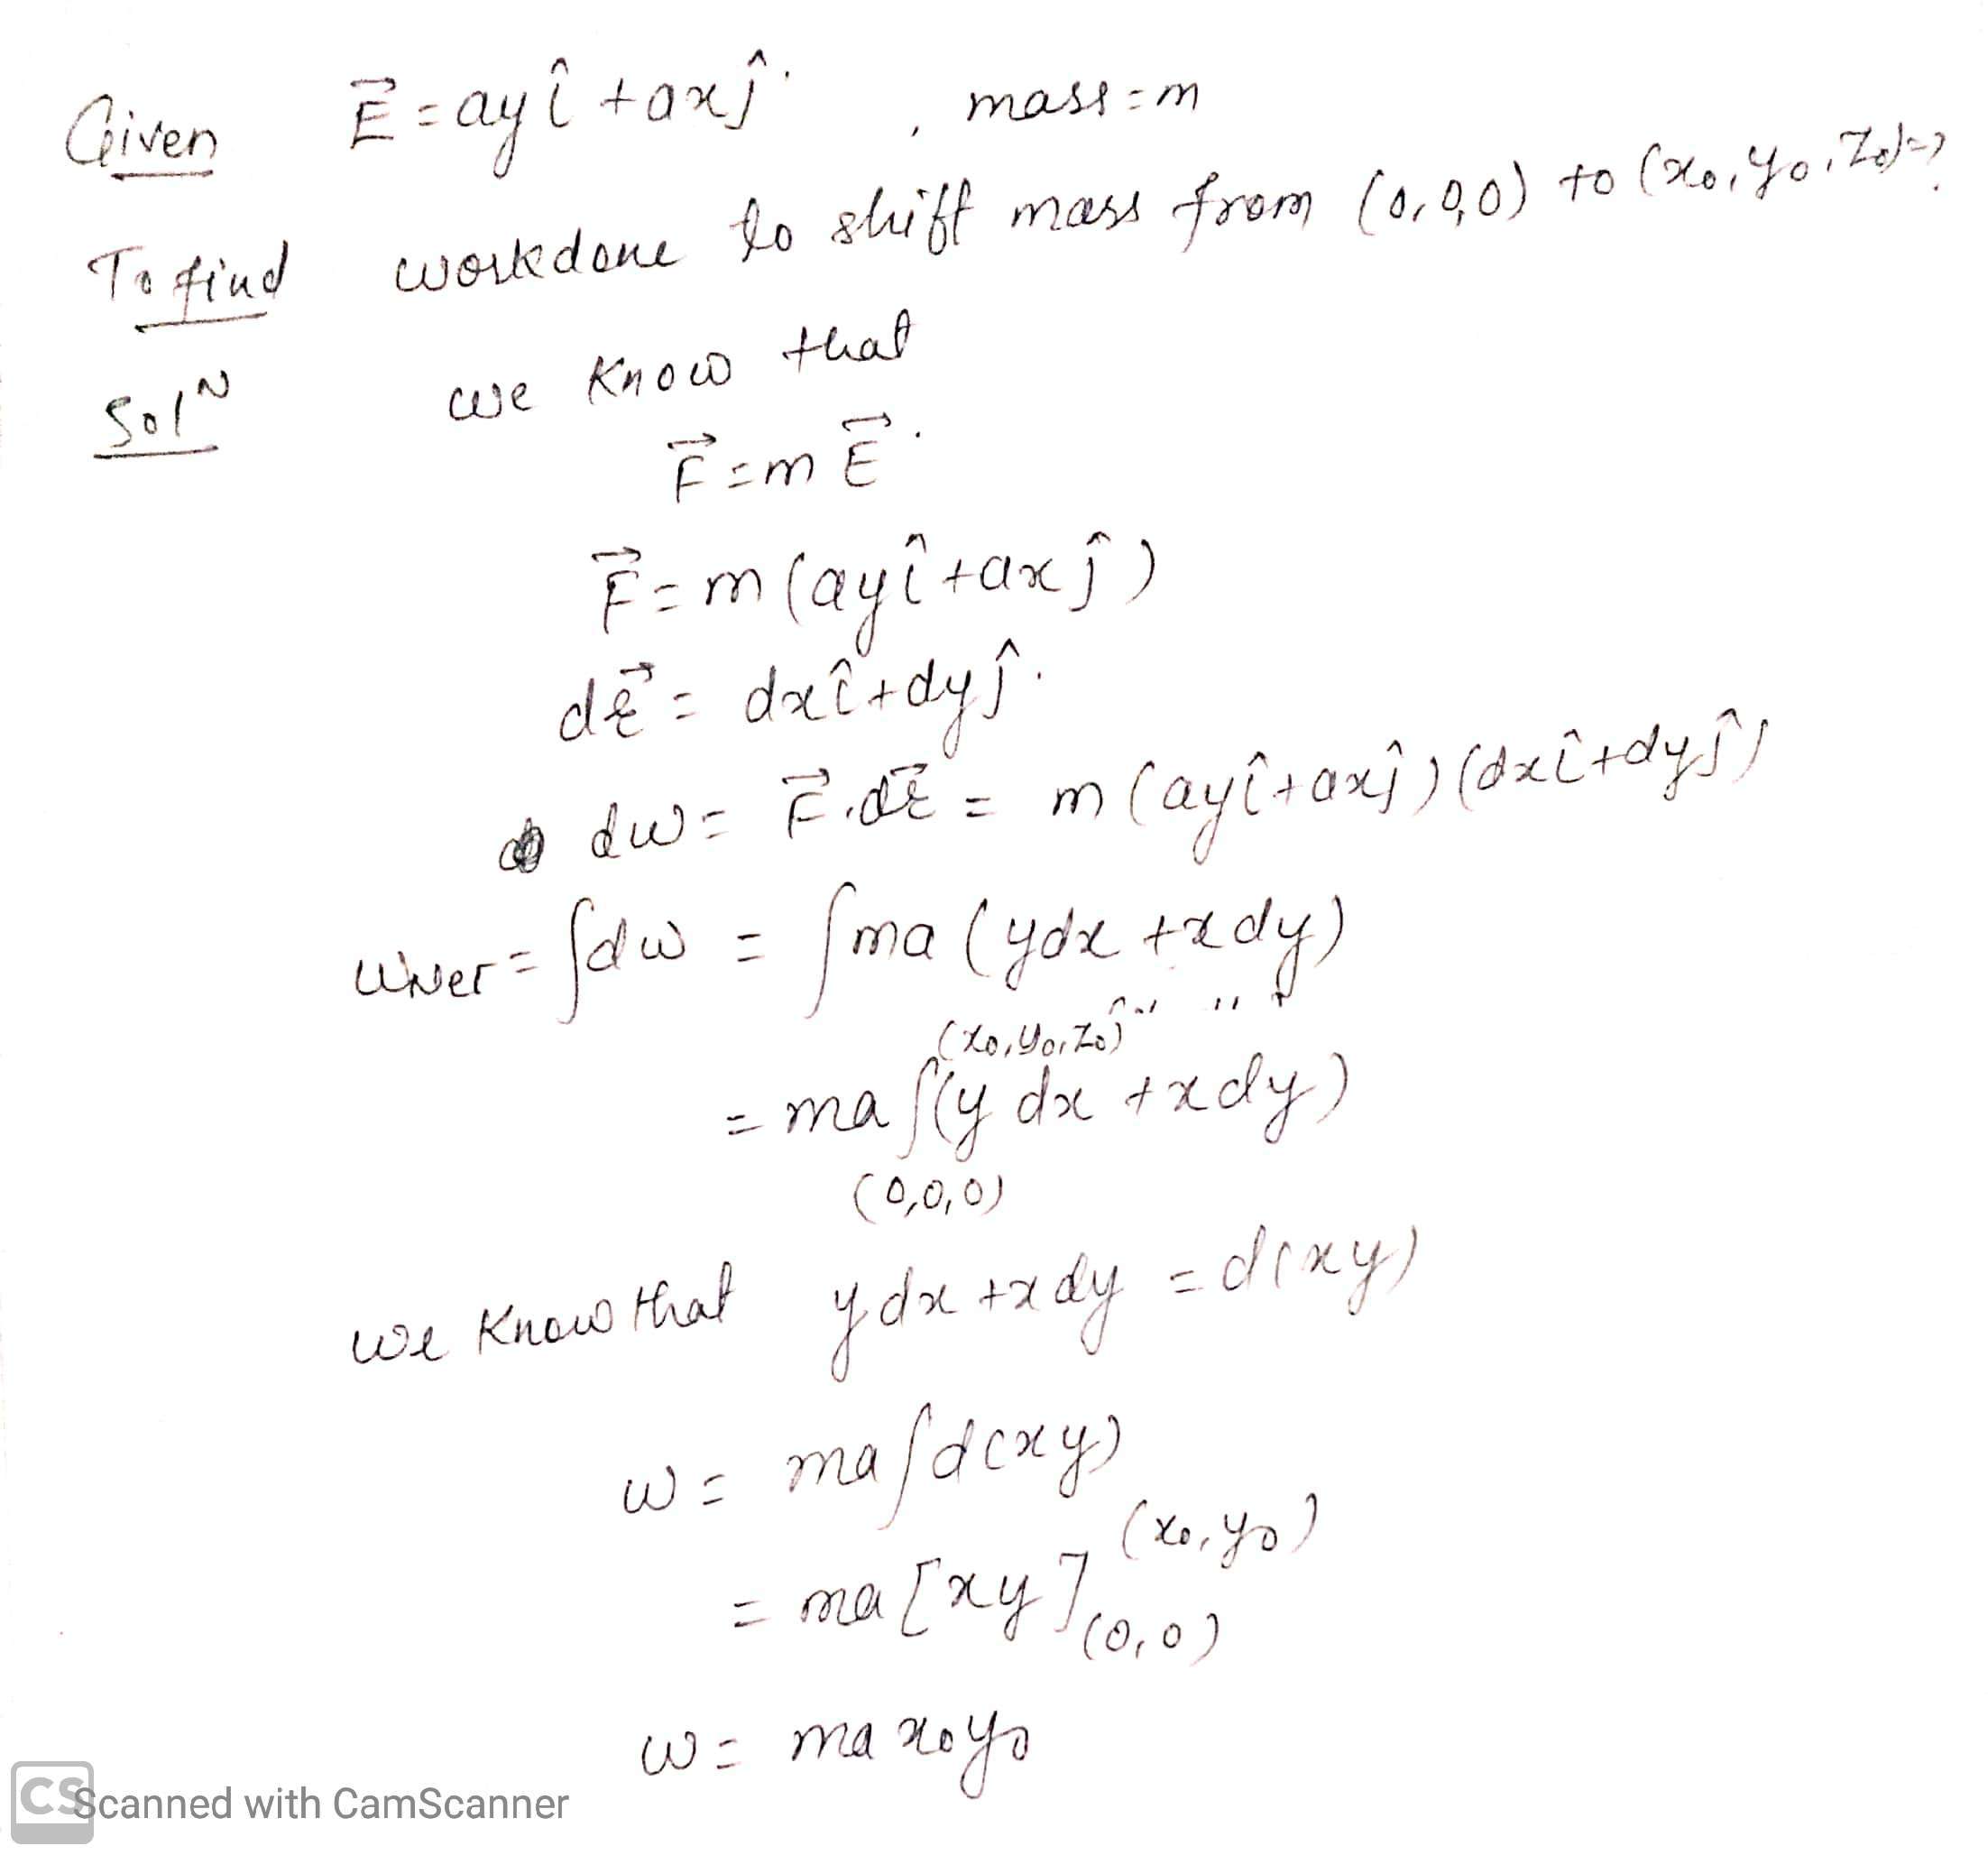 Given E⃗ = ayî + axĵ , mass = m
To find workdone to shift mass from (0,0,0) to (x₀, y₀, z₀) = ?
Solᴺ we know that
F⃗ = m E⃗
F⃗ = m (ayî + axĵ)
dr⃗ = dxî + dyĵ
dw = F⃗.dr⃗ = m (ayî + axĵ) (dxî + dyĵ)
wNet = ∫dw = ∫ma (ydx + xdy)
(x₀, y₀, z₀)
= ma ∫(y dx + xdy)
(0,0,0)
we know that ydx + xdy = d(xy)
w = ma ∫d(xy)
= ma [xy] (x₀, y₀)
(0,0)
w = max₀y₀
CS Scanned with CamScanner